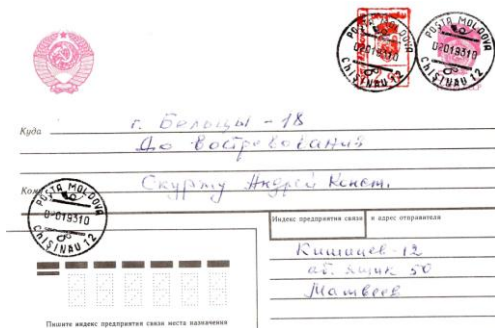 POSTA MOLDOVA
CHIȘINĂU 12
POSTA MOLDOVA
CHIȘINĂU 12
Куда г. Бельцы - 18
До Востребования
Кому Скурту Андрей
POSTA MOLDOVA
CHIȘINĂU 12
Индекс предприятия связи и адрес отправителя
Кишинев-12
аб. ящик 50
Матвеев
Пишите индекс предприятия связи места назначения